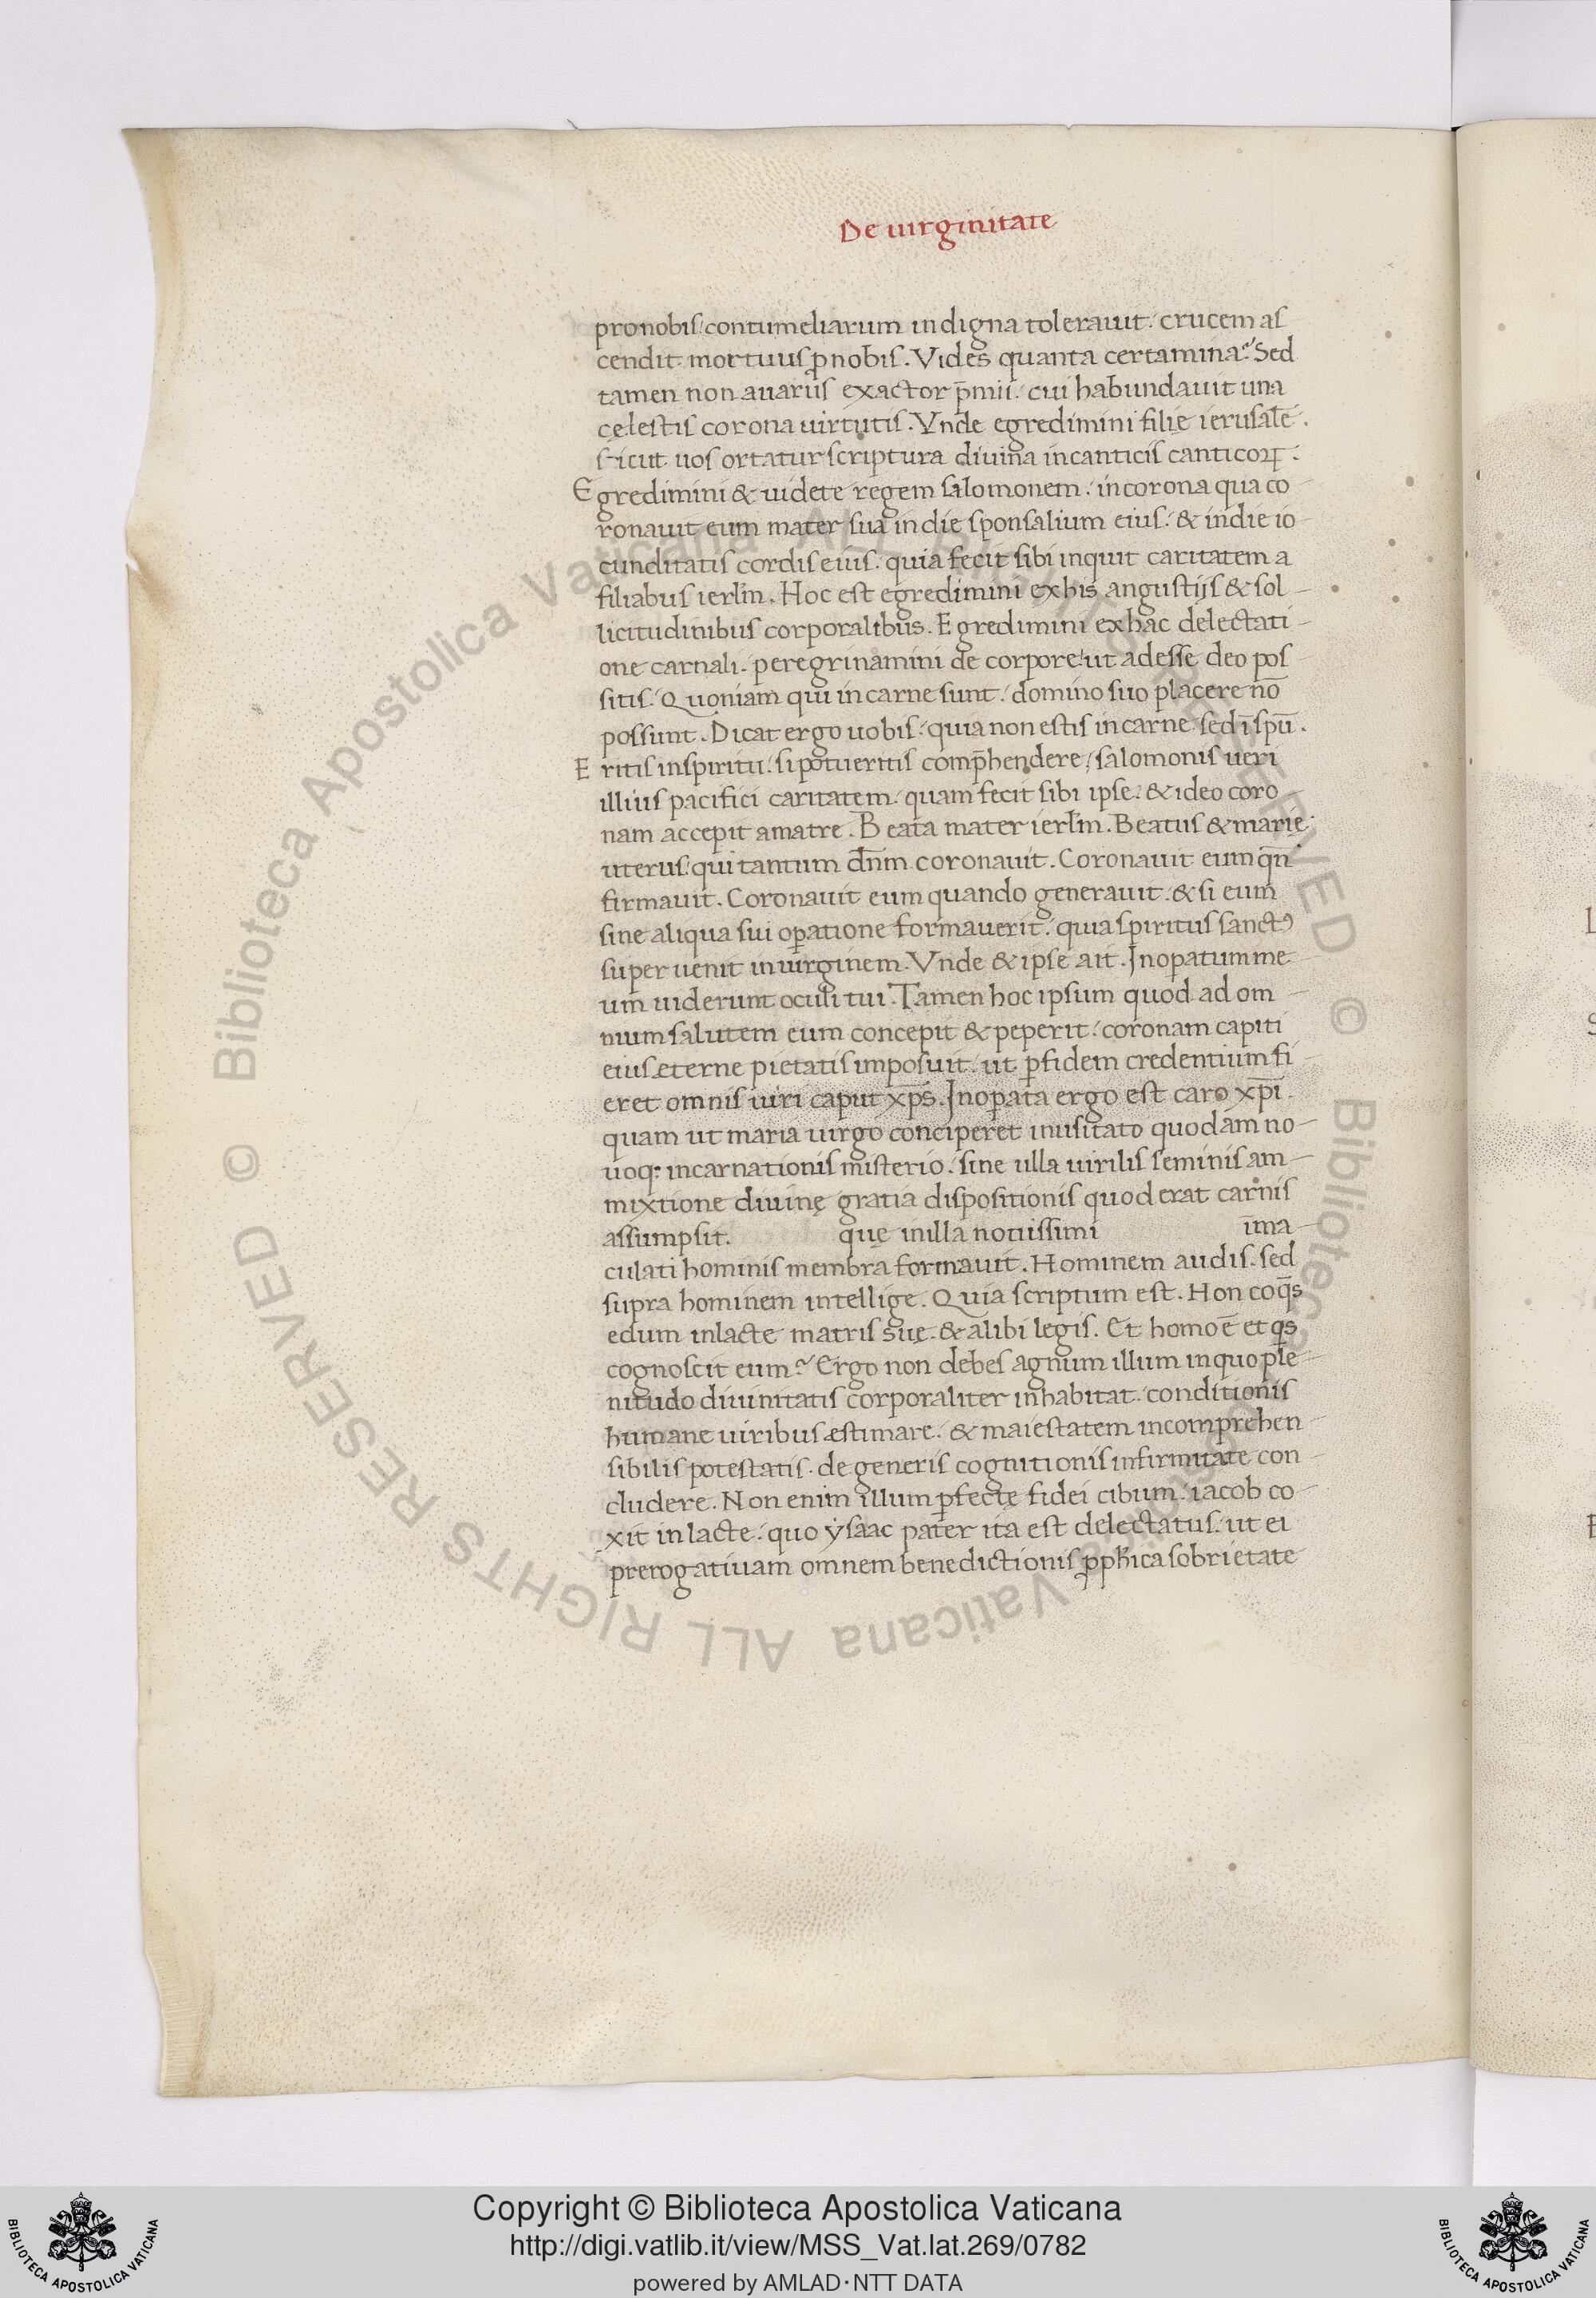 De uirginitate
pro nobis: contumeliarum indigna tolerauit: crucem as
cendit mortuus p̱ nobis. Vides quanta certamina? Sed
tamen non auarus exactor p̄mii: cui habundauit una
cęlestis corona uirtutis. Vnde egredimini filię ierusalē.
sicut uos ortatur scriptura diuina in canticis canticoꝝ:
Egredimini & uidete regem salomonem: in corona qua co
ronauit eum mater sua in die sponsalium eius: & in die io
cunditatis cordis eius: quia fecit sibi inquit caritatem a
filiabus ierl̄m. Hoc est egredimini ex his angustijs & sol
licitudinibus corporalibus. Egredimini ex hac delectati
one carnali. peregrinamini de corpore: ut adesse deo pos
sitis. Quoniam qui in carne sunt: domino suo placere nō
possunt. Dicat ergo uobis: quia non estis in carne sed ī spū.
Eritis in spiritu: si potueritis comp̄hendere: salomonis ueri
illius pacifici caritatem: quam fecit sibi ipse: & ideo coro
nam accepit a matre. Beata mater ierl̄m. Beatus & marię
uterus: qui tantum dn̄m coronauit. Coronauit eum qn̄
firmauit. Coronauit eum quando generauit: & si eum
sine aliqua sui oꝑatione formauerit: quia spiritus sanctꝰ
super uenit in uirginem. Vnde & ipse ait. Inopatum me
um uiderunt oculi tui. Tamen hoc ipsum quod ad om
nium salutem eum concepit & peperit: coronam capiti
eius æterne pietatis imposuit: ut ꝑ fidem credentium fi
eret omnis uiri caput xp̄s. Inopata ergo est caro xp̄i.
quam ut maria uirgo conciperet inusitato quodam no
uoq: incarnationis misterio: sine ulla uirilis seminis am
mixtione diuinę gratia dispositionis quod erat carnis
assumpsit. quę in illa nouissimi īma
culati hominis membra formauit. Hominem audis. sed
supra hominem intellige. Quia scriptum est. Non coq̄s
edum in lacte matris suę. & alibi legis. Et homo ē et qs
cognoscit eum? Ergo non debes agnum illum in quo ple
nitudo diuinitatis corporaliter inhabitat: conditionis
humane uiribus æstimare: & maiestatem incomprehen
sibilis potestatis. degeneris cognitionis infirmitate con
cludere. Non enim illum ꝑfectę fidei cibum: iacob co
xit in lacte: quo ẏsaac pater ita est delectatus: ut ei
prerogatiuam omnem benedictionis ꝓph̄ica sobrietate
Copyright © Biblioteca Apostolica Vaticana
http://digi.vatlib.it/view/MSS_Vat.lat.269/0782
powered by AMLAD·NTT DATA
BIBLIOTECA APOSTOLICA VATICANA
BIBLIOTECA APOSTOLICA VATICANA
© Biblioteca Apostolica Vaticana ALL RIGHTS RESERVED © Biblioteca Apostolica Vaticana ALL RIGHTS RESERVED